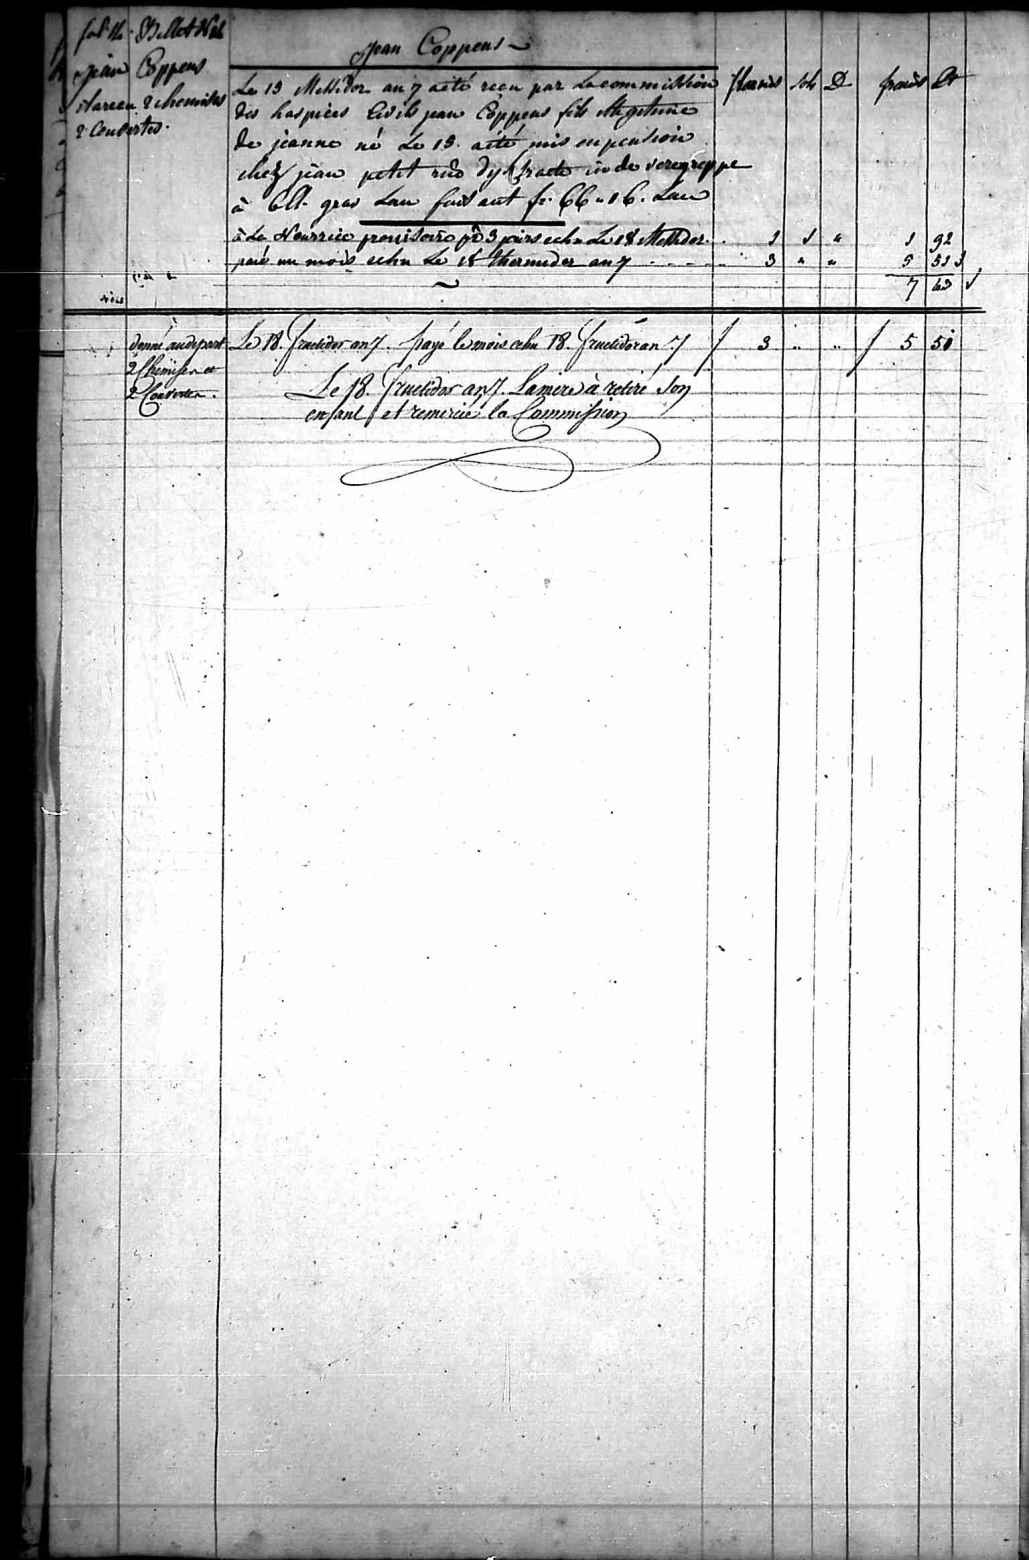 Jean Coppens
Jean Coppens
a recu 2 chemises
2 Couvertes.
florins sols D. francs Ct
Le 13 Messidor an 7 a eté reçu par La commission
des hospices Civils jean Coppens fils illegitime
de jeanne né Le 13. a eté mis en pension
chez jean petit
à 6 ll. gros Lan faisant fr. 66 " 16. Lan
à La Nourrice provisoire pr 3 jours echu Le 18 Messidor. 1 1 " 1 92
paié un mois echu Le 18 thermidor an 7 3 " " 5 51
7 43
donné au depart
2 Chemises et
2 Couvertes.
Le 18. fructidor an 7. payé le mois echu 18. fructidor an 7 3 " " 5 51
Le 18. fructidor an 7. La mere à retiré son
enfant et remercié la Commission